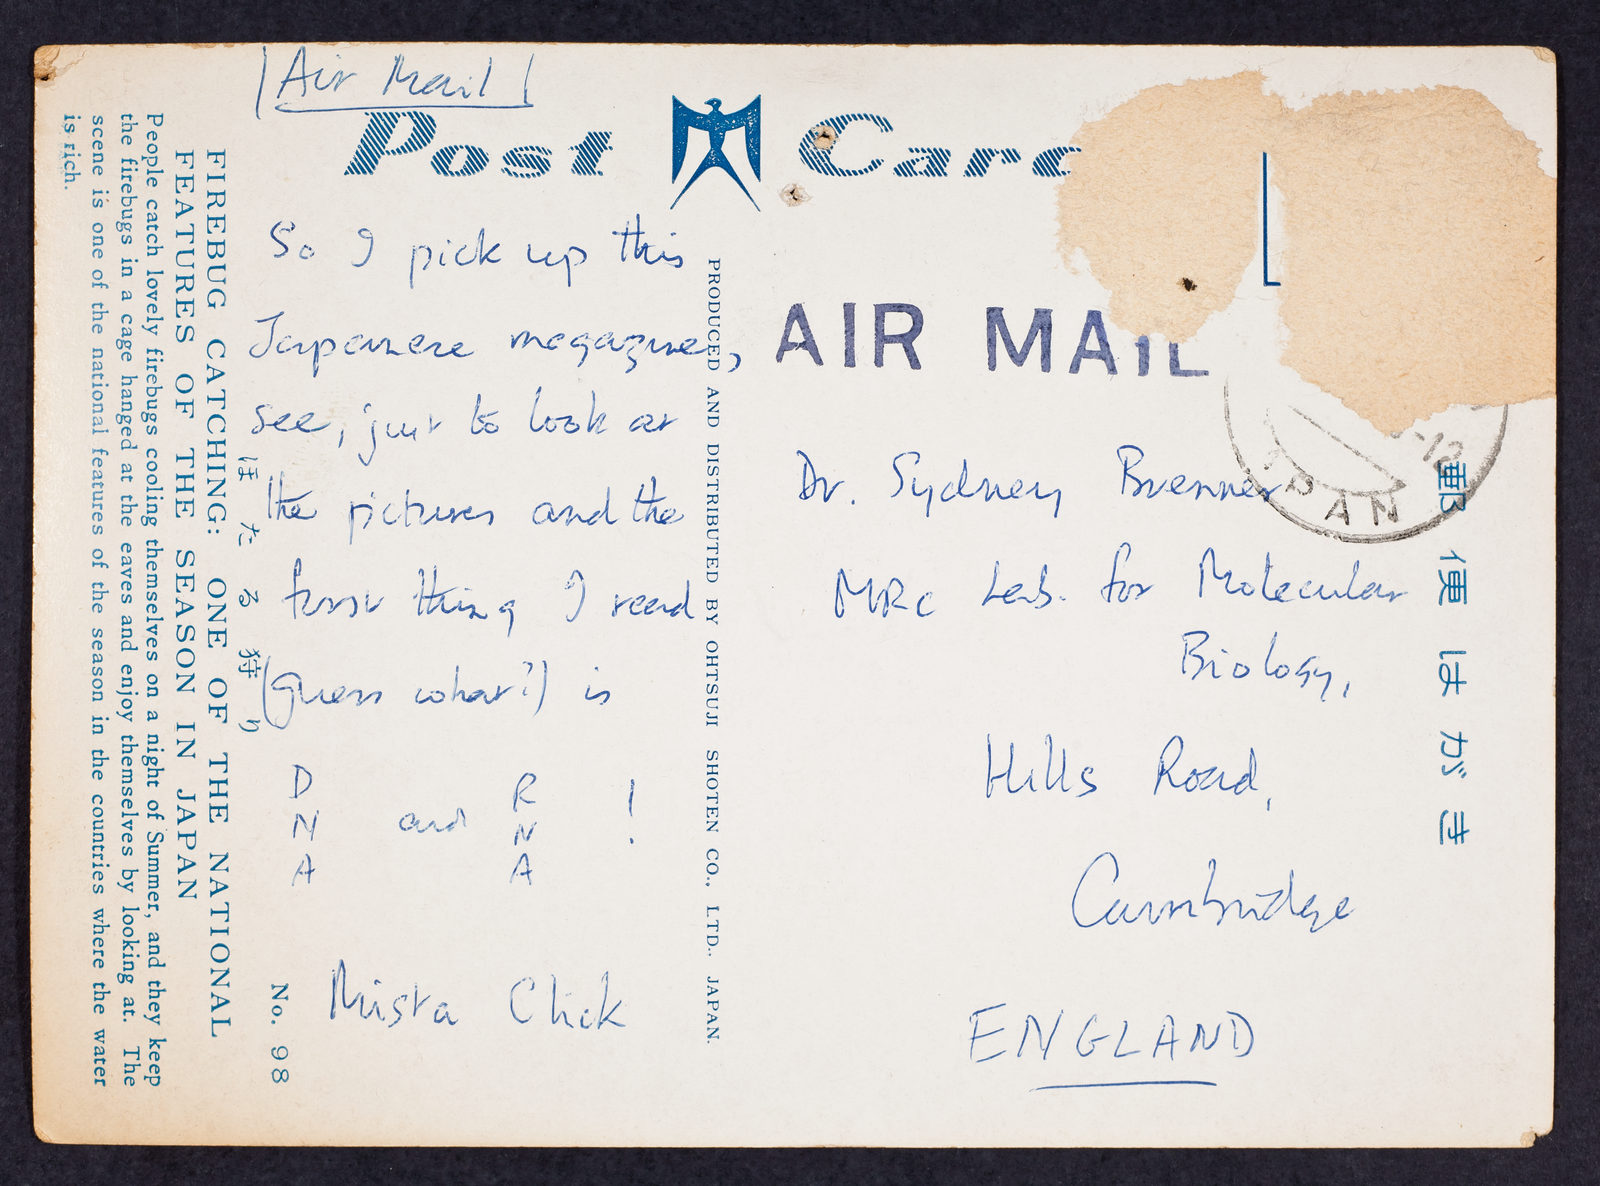 Air Mail
Post Car
So I pick up this
Japanese magazine,
see, just to look at
the pictures and the
first thing I read
(guess what?) is
D
N
A
and
R
N
A
!
Mista Chick
AIR MAIL
Dr. Sydney Brenner
MRC Lab. for Molecular
Biology,
Hills Road,
Cambridge
ENGLAND
PAN
郵便はがき
PRODUCED AND DISTRIBUTED BY OHTSUJI SHOTEN CO., LTD., JAPAN.
ほたる狩り
No. 98
FIREBUG CATCHING: ONE OF THE NATIONAL
FEATURES OF THE SEASON IN JAPAN
People catch lovely firebugs cooling themselves on a night of Summer, and they keep
the firebugs in a cage hanged at the eaves and enjoy themselves by looking at. The
scene is one of the national features of the season in the countries where the water
is rich.